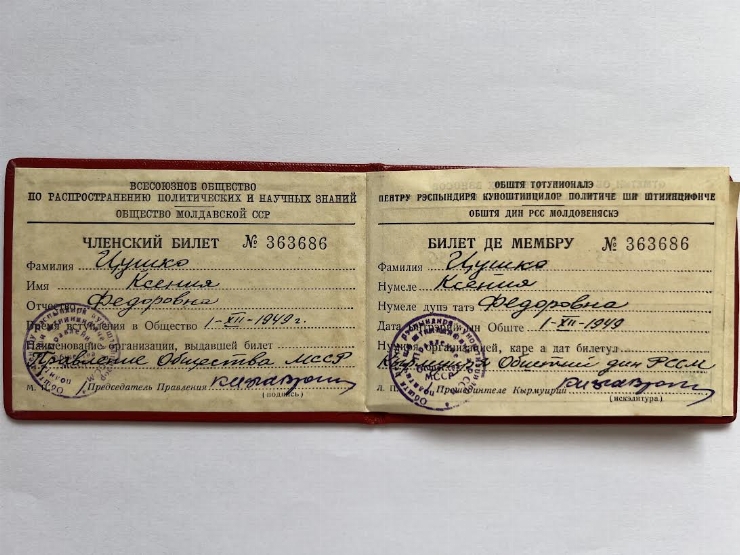 ВСЕСОЮЗНОЕ ОБЩЕСТВО
ПО РАСПРОСТРАНЕНИЮ ПОЛИТИЧЕСКИХ И НАУЧНЫХ ЗНАНИЙ
ОБЩЕСТВО МОЛДАВСКОЙ ССР
ЧЛЕНСКИЙ БИЛЕТ № 363686
Фамилия Цушко
Имя Ксения
Отчество Федоровна
Время вступления в Общество 1-XII-1949г.
Наименование организации, выдавшей билет
Правление Общества МССР
М. П. Председатель Правления
(подпись)
ОБШТЯ ТОТУНИОНАЛЭ
ПЕНТРУ РЭСПЫНДИРЯ КУНОШТИНЦИЛОР ПОЛИТИЧЕ ШИ ШТИИНЦИФИЧЕ
ОБШТЯ ДИН РСС МОЛДОВЕНЯСКЭ
БИЛЕТ ДЕ МЕМБРУ № 363686
Фамилия Цушко
Нумеле Ксения
Нумеле дупэ татэ Федоровна
Дата ын Обште 1-XII-1949
Нумиря организацией, каре а дат билетул
Обштий дин РССМ
Л. П. Прешединтеле Кырмуирий
(искэлитура)
МССР